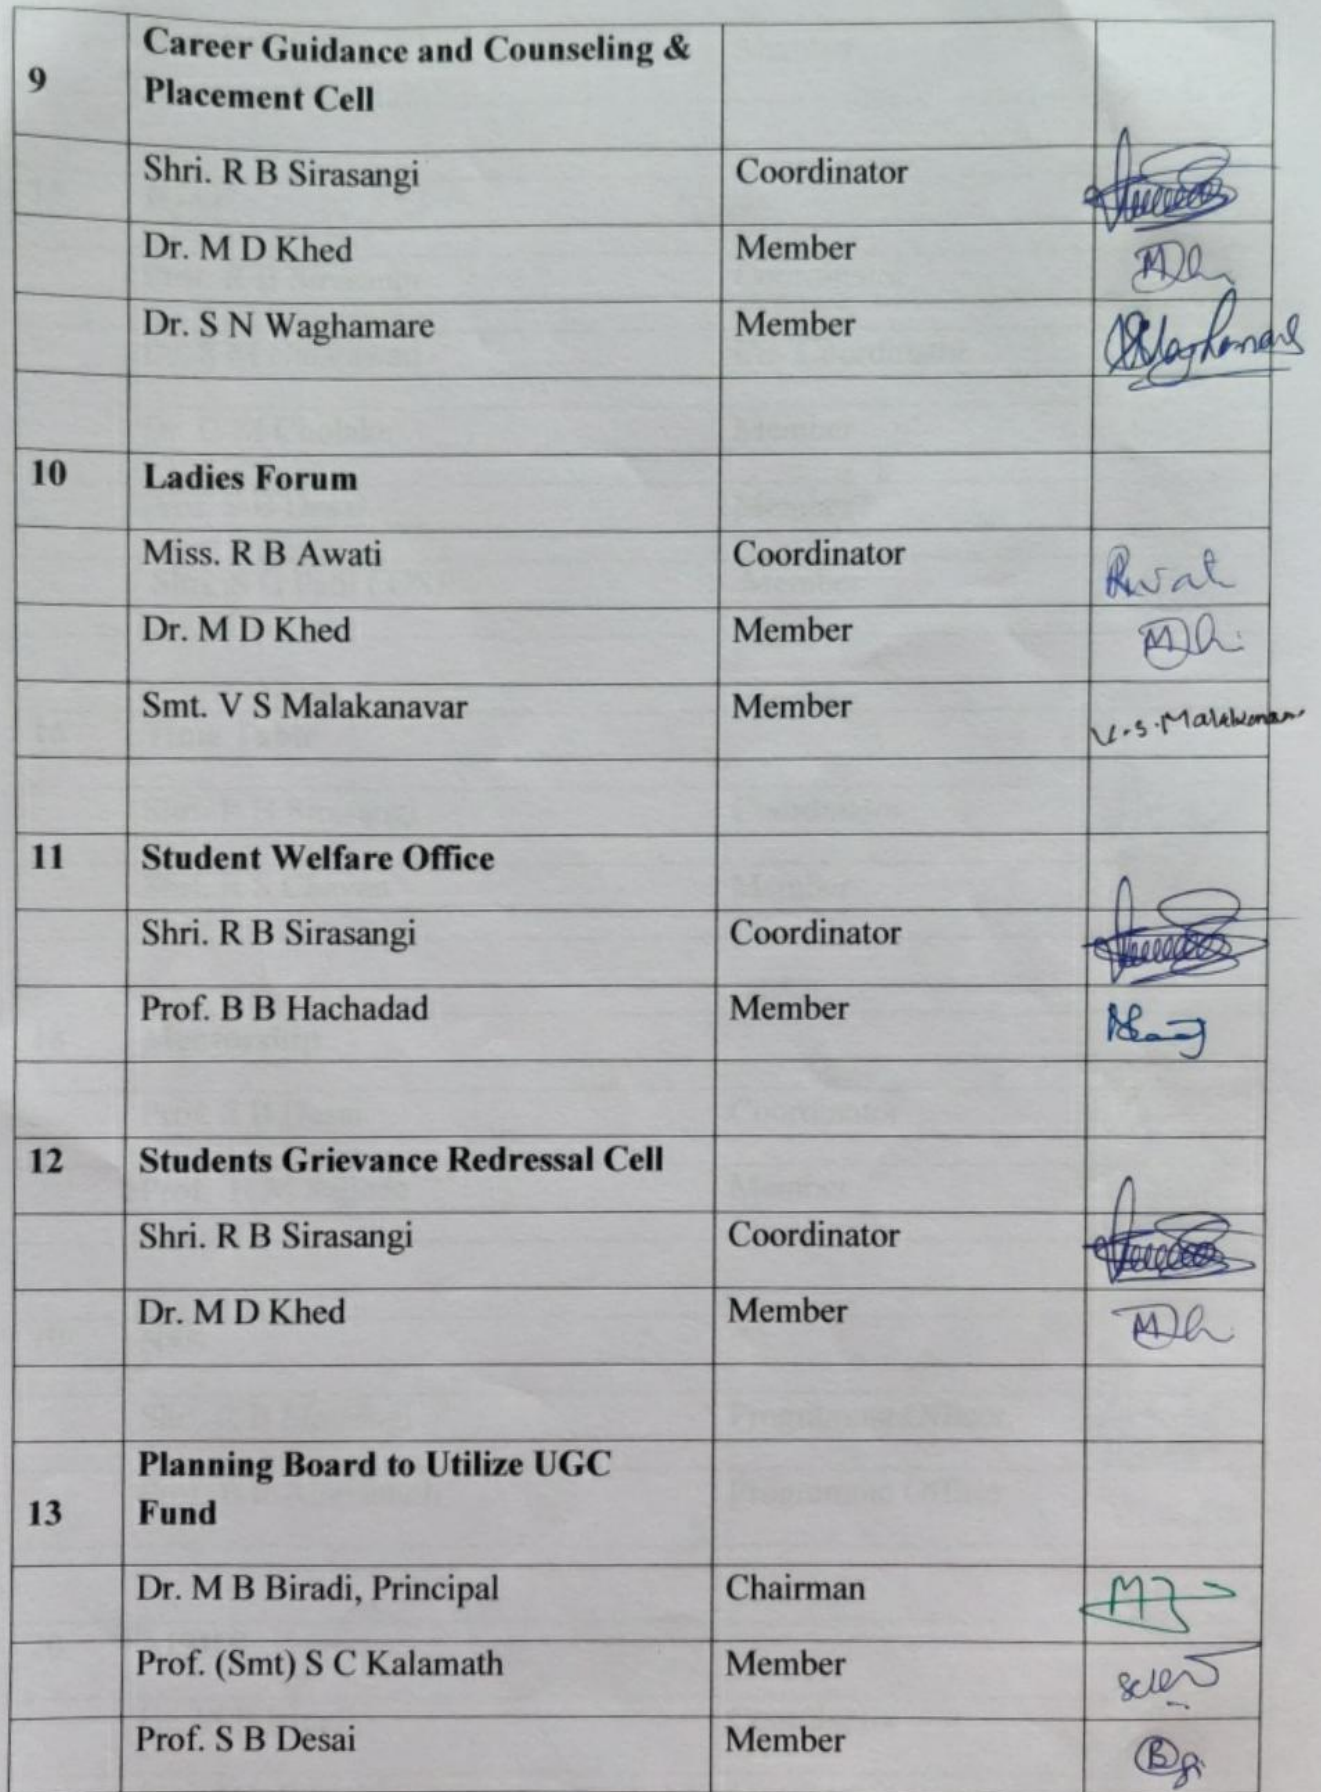 9 Career Guidance and Counseling &
Placement Cell
Shri. R B Sirasangi Coordinator
Dr. M D Khed Member
Dr. S N Waghamare Member
10 Ladies Forum
Miss. R B Awati Coordinator
Dr. M D Khed Member
Smt. V S Malakanavar Member
11 Student Welfare Office
Shri. R B Sirasangi Coordinator
Prof. B B Hachadad Member
12 Students Grievance Redressal Cell
Shri. R B Sirasangi Coordinator
Dr. M D Khed Member
Planning Board to Utilize UGC
13 Fund
Dr. M B Biradi, Principal Chairman
Prof. (Smt) S C Kalamath Member
Prof. S B Desai Member